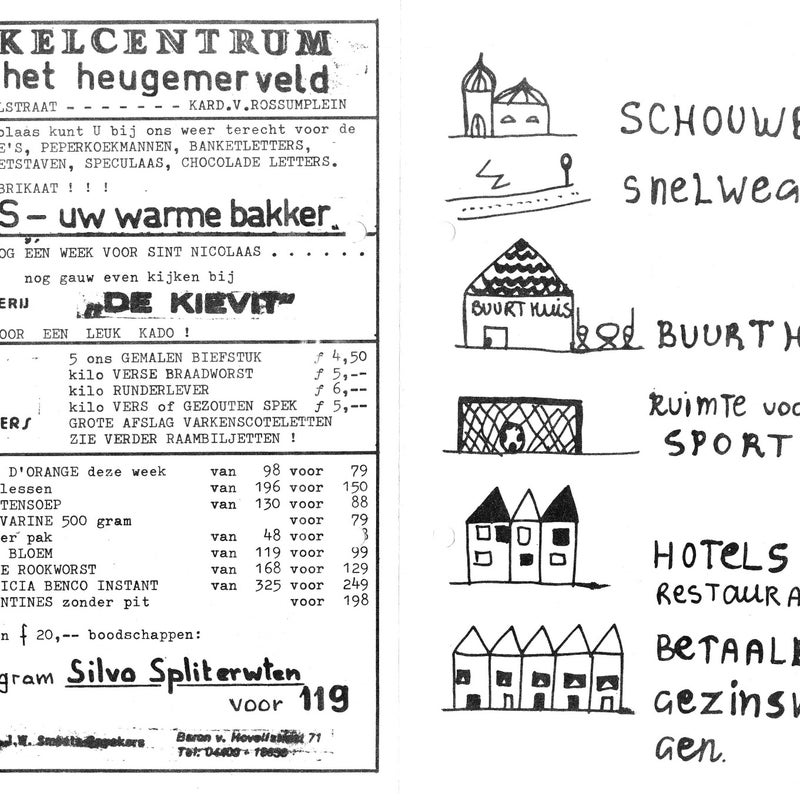 KELCENTRUM
het heugemerveld
LSTRAAT - - - - - - - KARD.V.ROSSUMPLEIN
olaas kunt U bij ons weer terecht voor de
E'S, PEPERKOEKMANNEN, BANKETLETTERS,
ETSTAVEN, SPECULAAS, CHOCOLADE LETTERS.
BRIKAAT ! ! !
S - uw warme bakker.
OG EEN WEEK VOOR SINT NICOLAAS . . . . . .
nog gauw even kijken bij
ERIJ „DE KIEVIT"
OOR EEN LEUK KADO !
5 ons GEMALEN BIEFSTUK ƒ 4,50
kilo VERSE BRAADWORST ƒ 5,--
kilo RUNDERLEVER ƒ 6,--
kilo VERS of GEZOUTEN SPEK ƒ 5,--
ERS GROTE AFSLAG VARKENSCOTELETTEN
ZIE VERDER RAAMBILJETTEN !
D'ORANGE deze week van 98 voor 79
lessen van 196 voor 150
TENSOEP van 130 voor 88
VARINE 500 gram voor 79
er pak van 48 voor
BLOEM van 119 voor 99
E ROOKWORST van 168 voor 129
ICIA BENCO INSTANT van 325 voor 249
NTINES zonder pit voor 198
n ƒ 20,-- boodschappen:
gram Silvo Spliterwten
voor 119
J.W. Baron v. Hovellstraat 71
Tel: 04400 -
SCHOUWB
snelweg
BUURT HUIS
BUURT H
RUIMTE voo
SPORT
HOTELS
RESTAURA
BETAALB
GEZINSW
GEN.